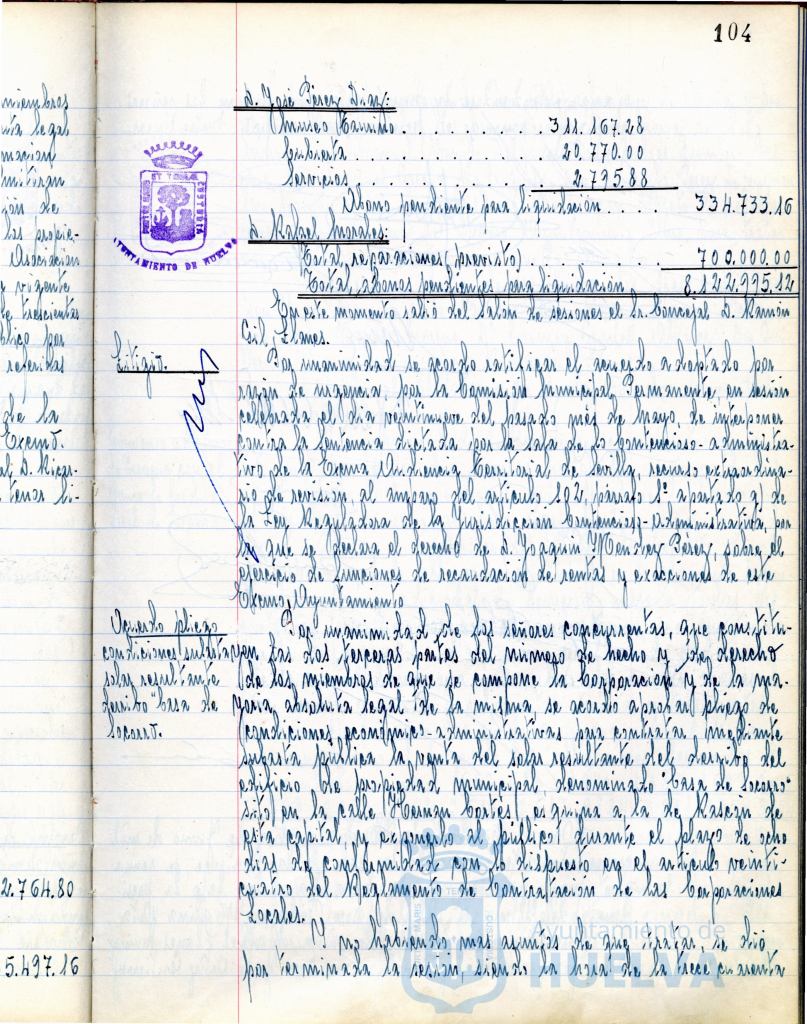 104
miembros
uta legal
mación
mitirán
ión de
las propie-
Asociación
y vigente
de trescientas
blico por
referidas
de la
Excmo.
al, D. Ricar-
tenor li-
2.764.80
5.497.16
AYUNTAMIENTO DE HUELVA
D. José Pérez Díaz:
Museo Camino . . . . . . . . 311.167.28
Cubierta . . . . . . . . . . 20.770.00
Servicios . . . . . . . . . 2.795.88
Abono pendiente para liquidación . . . . 334.733.16
D. Rafael Morales:
Total reparaciones (previsto) . . . . . . . . 700.000.00
Total, abonos pendientes para liquidación 8.122.995.12
En este momento salió del Salón de sesiones el Sr. Concejal D. Ramón
Gil, Llanes.
Litigio.
Por unanimidad se acordó ratificar el acuerdo adoptado por
razón de urgencia, por la Comisión Municipal Permanente, en sesión
celebrada el día veintinueve del pasado mes de Mayo, de interponer
contra la Sentencia dictada por la Sala de lo Contencioso-administra-
tivo de la Excma Audiencia Territorial de Sevilla, recurso extraordina-
rio de revisión, al amparo del artículo 102, párrafo 1º apartado g) de
la Ley Reguladora de la Jurisdicción Contencioso-Administrativa, por
la que se declara el derecho de D. Joaquín Mendez Pérez, sobre el
ejercicio de funciones de recaudación de rentas y exacciones de este
Excmo, Ayuntamiento
Acuerdo pliego
condiciones subasta
solar resultante
derribo "Casa de
Socorro.
Por unanimidad de los señores concurrentes, que constitu-
yen las dos terceras partes del número de hecho y de derecho
de los miembros de que se compone la Corporación y de la ma-
yoría, absoluta legal de la misma, se acordó aprobar pliego de
condiciones económico-administrativas para contratar, mediante
subasta pública la venta del solar resultante del derribo del
edificio de propiedad municipal, denominado "Casa de Socorro"
sito en la calle Hernan Cortés, esquina a la de Rascón de
esta capital, y exponerlo al público durante el plazo de ocho
días de conformidad con lo dispuesto en el artículo veinti-
cuatro del Reglamento de Contratación de las Corporaciones
Locales.
Y no habiendo más asuntos de que tratar, se dió
por terminada la sesión, siendo la hora de la trece cuarenta
Ayuntamiento de
HUELVA